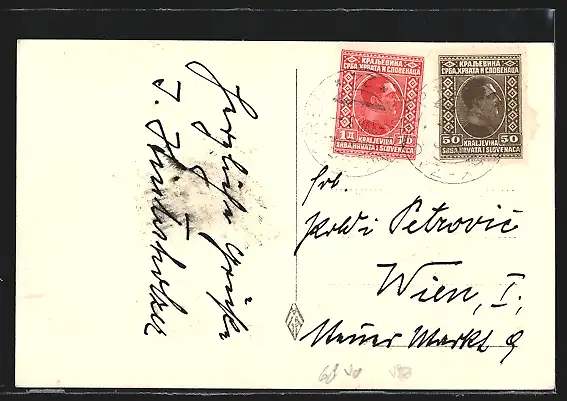 Herzliche Grüße
КРАЉЕВИНА
СРБА, ХРВАТА И СЛОВЕНАЦА
1 Д 1 D
KRALJEVINA
SRBA, HRVATA I SLOVENACA
КРАЉЕВИНА
СРБА, ХРВАТА И СЛОВЕНАЦА
50 50
KRALJEVINA
SRBA, HRVATA I SLOVENACA
Petrovic
Wien, I.,
Neuer Markt 9